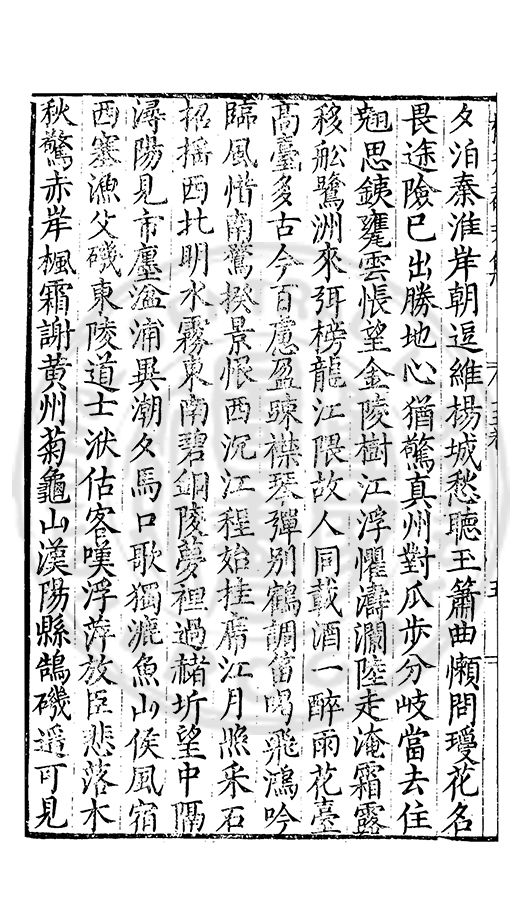 夕泊秦淮岸朝逗維楊城愁聽玉簫曲懶問瓊花名
畏途險已出勝地心猶驚真州對瓜步分岐當去住
翹思銕甕雲悵望金陵樹江浮懼濤瀾陸走淹霜露
移船鷺洲來弭榜龍江隈故人同載酒一醉雨花臺
高臺多古今百慮盈疎襟琴彈別鶴調笛喝飛鴻吟
臨風惜南鶩揆景恨西沉江程始挂席江月照采石
招搖西北明水霧東南碧銅陵夢裡過赭圻望中隔
潯陽見市廛湓浦異潮夕馬口歌獨漉魚山候風宿
西塞漁父磯東陵道士洑估客嘆浮萍放臣悲落木
秋驚赤岸楓霜謝黃州菊龜山漢陽縣鵠磯遥可見